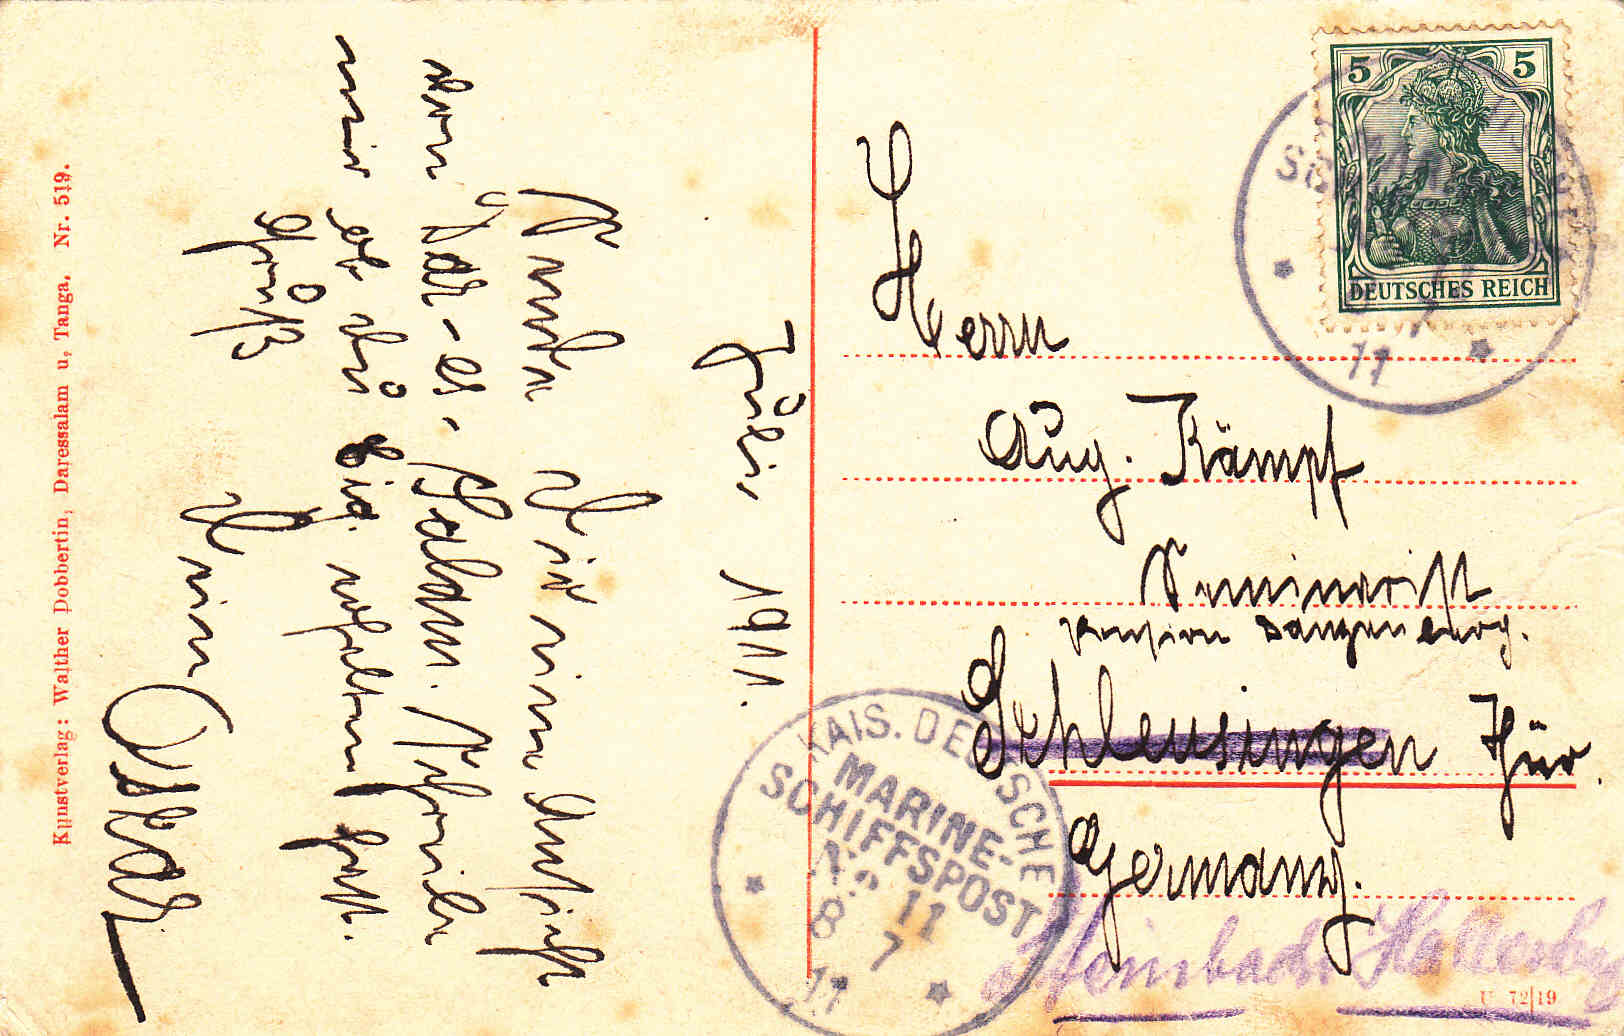 Juli 1911.
Sende Dir eine Ansicht
von Dar-es-Salam. Schreibe
mir ob du sie erhalten hast.
Gruß
Dein Oskar
Kunstverlag: Walther Dobbertin, Daressalam u, Tanga. Nr. 519.
5 5
DEUTSCHES REICH
11
Herrn
Aug. Kämpf
Seminarist
Pension Langenburg.
Schleusingen Thür.
Germany.
Steinbach Hallenberg
KAIS. DEUTSCHE
MARINE-
SCHIFFSPOST
No 11
8 7
11
U 72|19